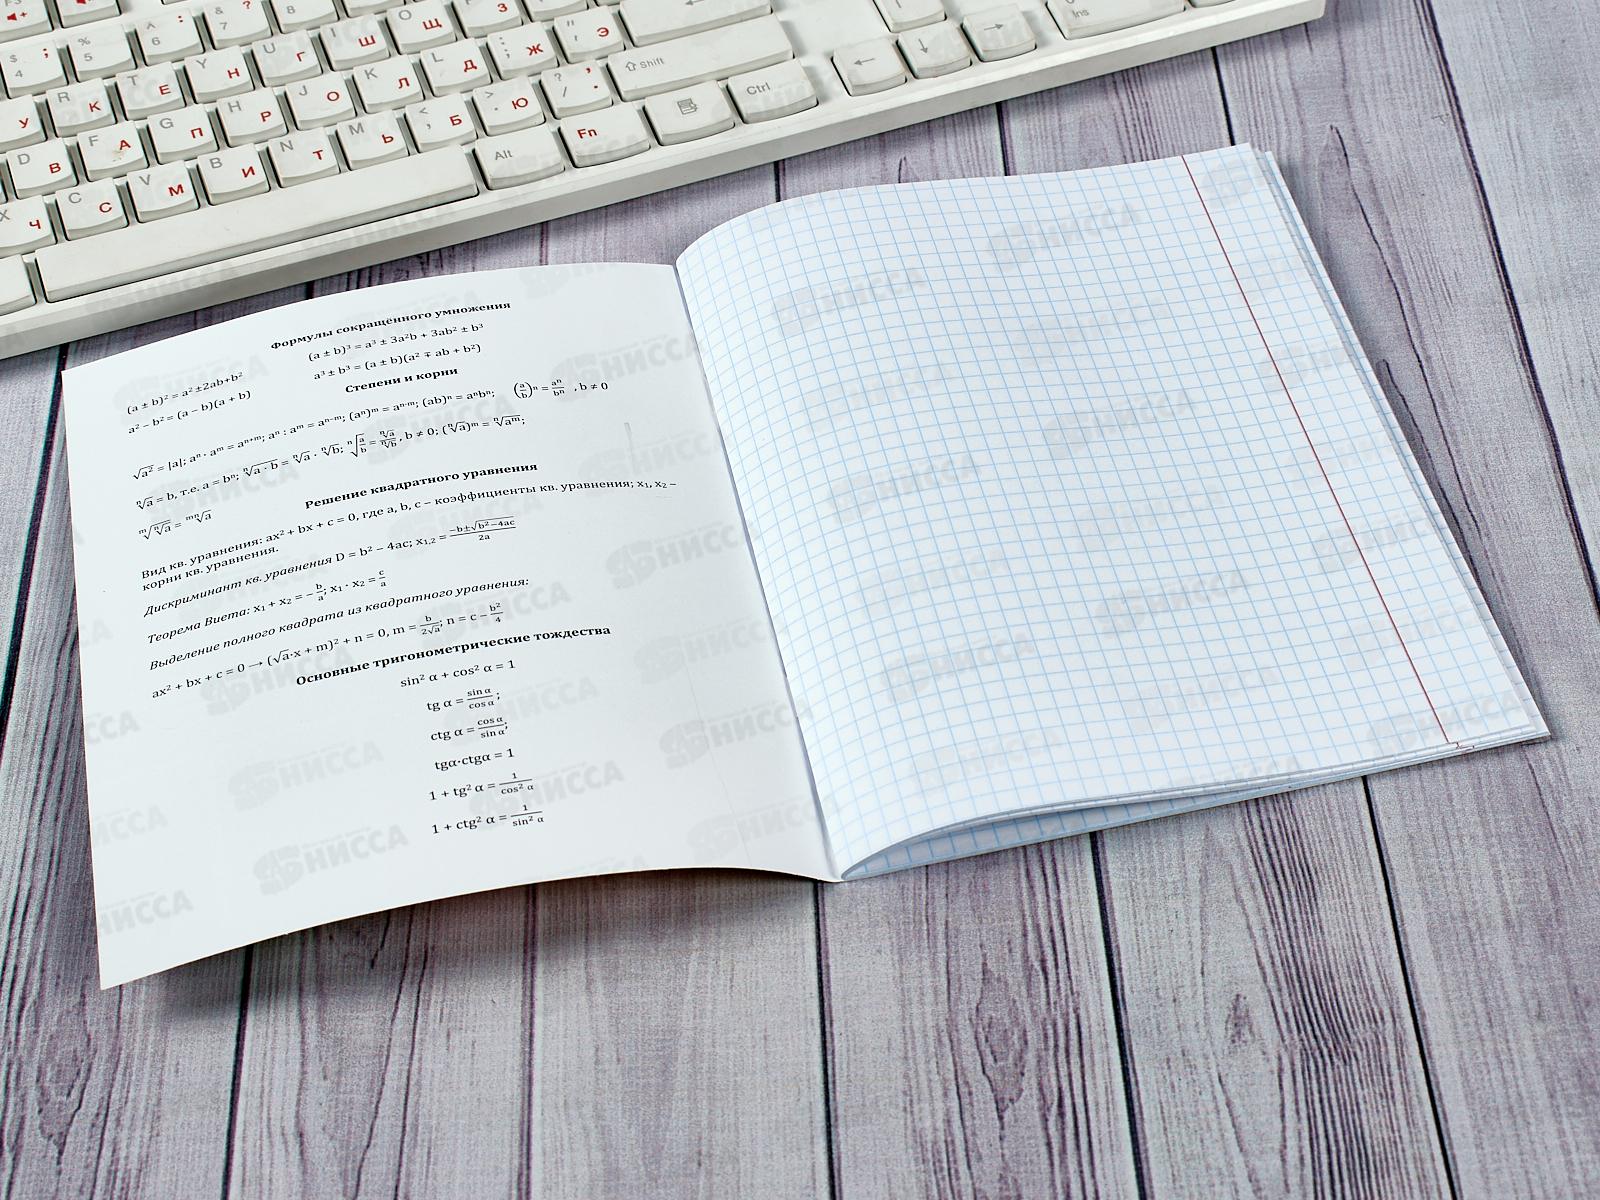 Формулы сокращённого умножения
(a ± b)² = a² ±2ab+b²
(a ± b)³ = a³ ± 3a²b + 3ab² ± b³
a² − b² = (a − b)(a + b)
a³ ± b³ = (a ± b)(a² ∓ ab + b²)
Степени и корни
√a² = |a|; aⁿ · aᵐ = aⁿ⁺ᵐ; aⁿ : aᵐ = aⁿ⁻ᵐ; (aⁿ)ᵐ = aⁿ·ᵐ; (ab)ⁿ = aⁿbⁿ; (a/b)ⁿ = aⁿ/bⁿ , b ≠ 0
ⁿ√a = b, т.е. a = bⁿ; ⁿ√a · b = ⁿ√a · ⁿ√b; ⁿ√a/b = ⁿ√a/ⁿ√b, b ≠ 0; (ⁿ√a)ᵐ = ⁿ√aᵐ;
ᵐ√ⁿ√a = ᵐⁿ√a
Решение квадратного уравнения
Вид кв. уравнения: ax² + bx + c = 0, где a, b, c – коэффициенты кв. уравнения; x₁, x₂ –
корни кв. уравнения.
Дискриминант кв. уравнения D = b² − 4ac; x₁,₂ = −b±√b²−4ac/2a
Теорема Виета: x₁ + x₂ = − b/a; x₁ · x₂ = c/a
Выделение полного квадрата из квадратного уравнения:
ax² + bx + c = 0 → (√a·x + m)² + n = 0, m = b/2√a; n = c − b²/4
Основные тригонометрические тождества
sin² α + cos² α = 1
tg α = sin α/cos α;
ctg α = cos α/sin α;
tgα·ctgα = 1
1 + tg² α = 1/cos² α
1 + ctg² α = 1/sin² α
$ ; 4 % 5 ^ : 6 & ? 7
У R К T Е Y Н U Г I Ш O Щ P З
D В F А G П H Р J О K Л L Д : ; Ж " ' Э
X Ч C С V М B И N Т M Ь < , Б > . Ю ? / . , ⇧ Shift
Alt Fn Ctrl
← ↓ →
0 Ins
НИССА